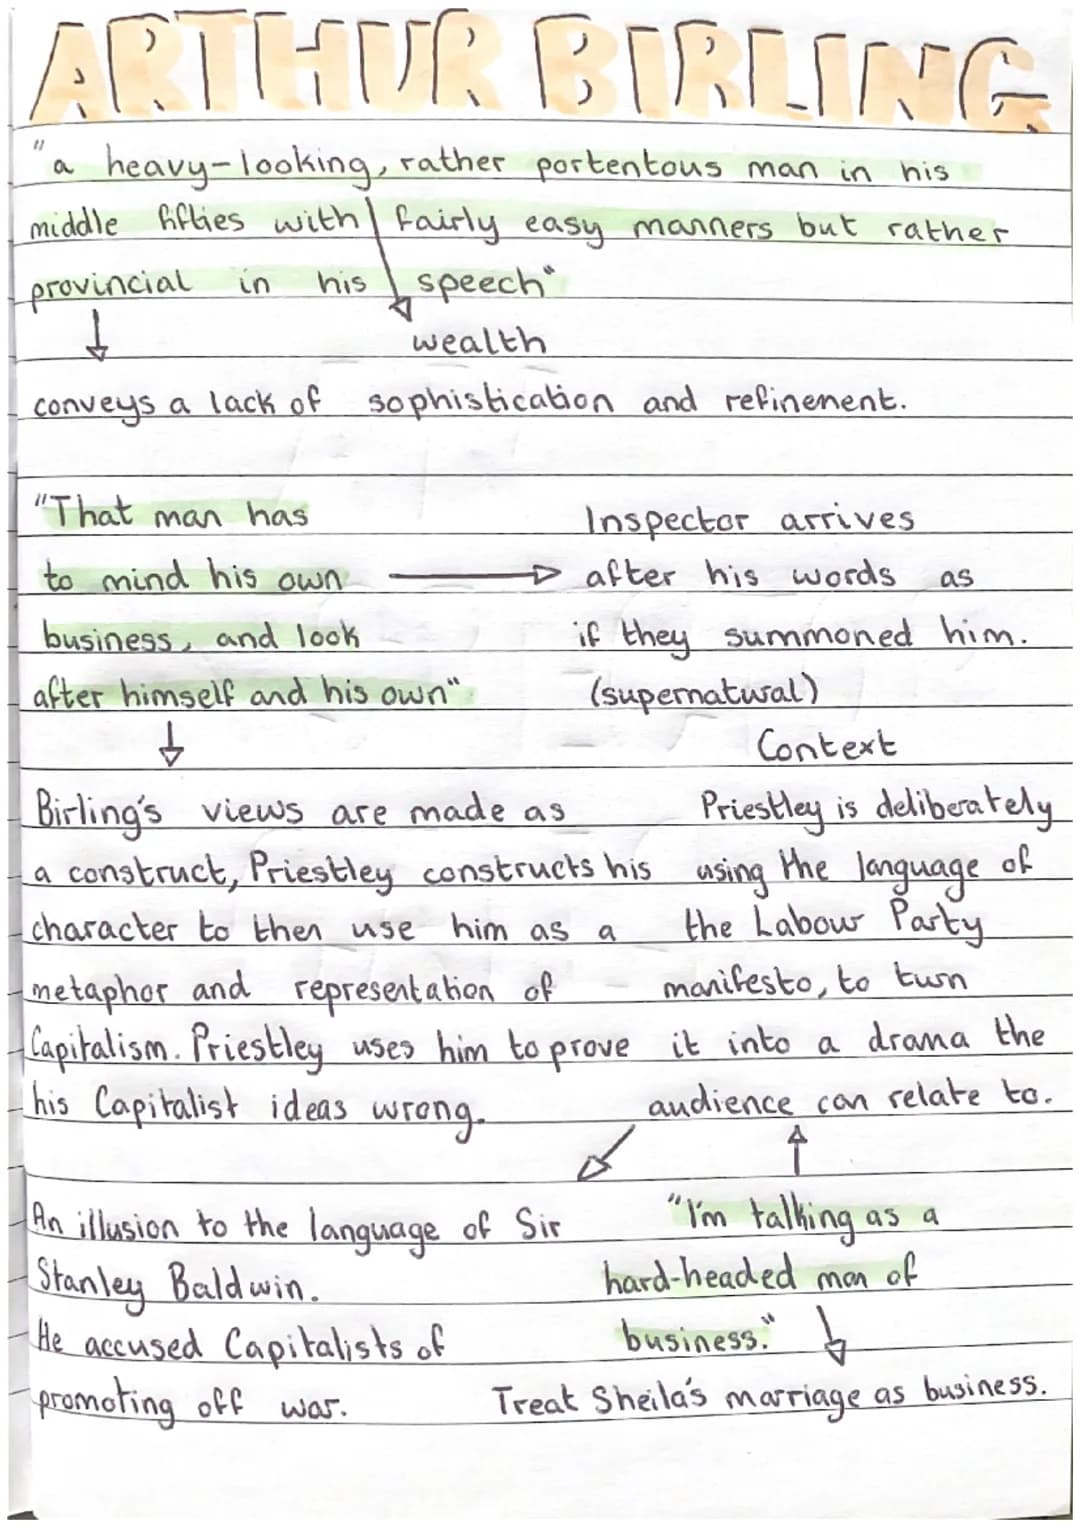 ARTHUR BIRLING
"a heavy-looking, rather portentous man in his
middle fifties with fairly easy manners but rather
provincial in his speech"
wealth
conveys a lack of sophistication and refinement.
"That man has
to mind his own
business, and look
after himself and his own"
Inspector arrives
after his words as
if they summoned him.
(supernatural)
Context
Birling's views are made as
a construct, Priestley constructs his
character to then use him as a
metaphor and representation of
Capitalism. Priestley uses him to prove
his Capitalist ideas wrong.
Priestley is deliberately
using the language of
the Labour Party
manifesto, to turn
it into a drama the
audience can relate to.
An illusion to the language of Sir
Stanley Baldwin.
He accused Capitalists of
promoting off war.
"I'm talking as a
hard-headed man of
business."
Treat Sheila's marriage as business.